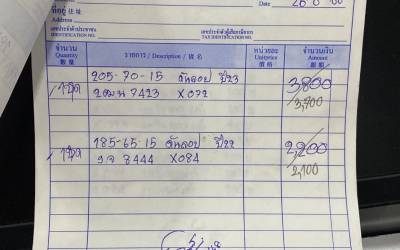 ที่อยู่ 住址 Date 26
Address
เลขประจำตัวประชาชน เลขประจำตัวผู้เสียภาษีอากร
IDENTIFICATION NO. TAX IDENTIFICATION NO.
จำนวน รายการ / Description / 貨名 หน่วยละ จำนวนเงิน
Quantity Unitprice Amount
數量 價格 銀額
1ชุด 205-70-15 ดันลอป ปี23 3,800
7423 X072 3,700
1ชุด 185-65-15 ดันลอป ปี22 2,200
8444 X084 2,100